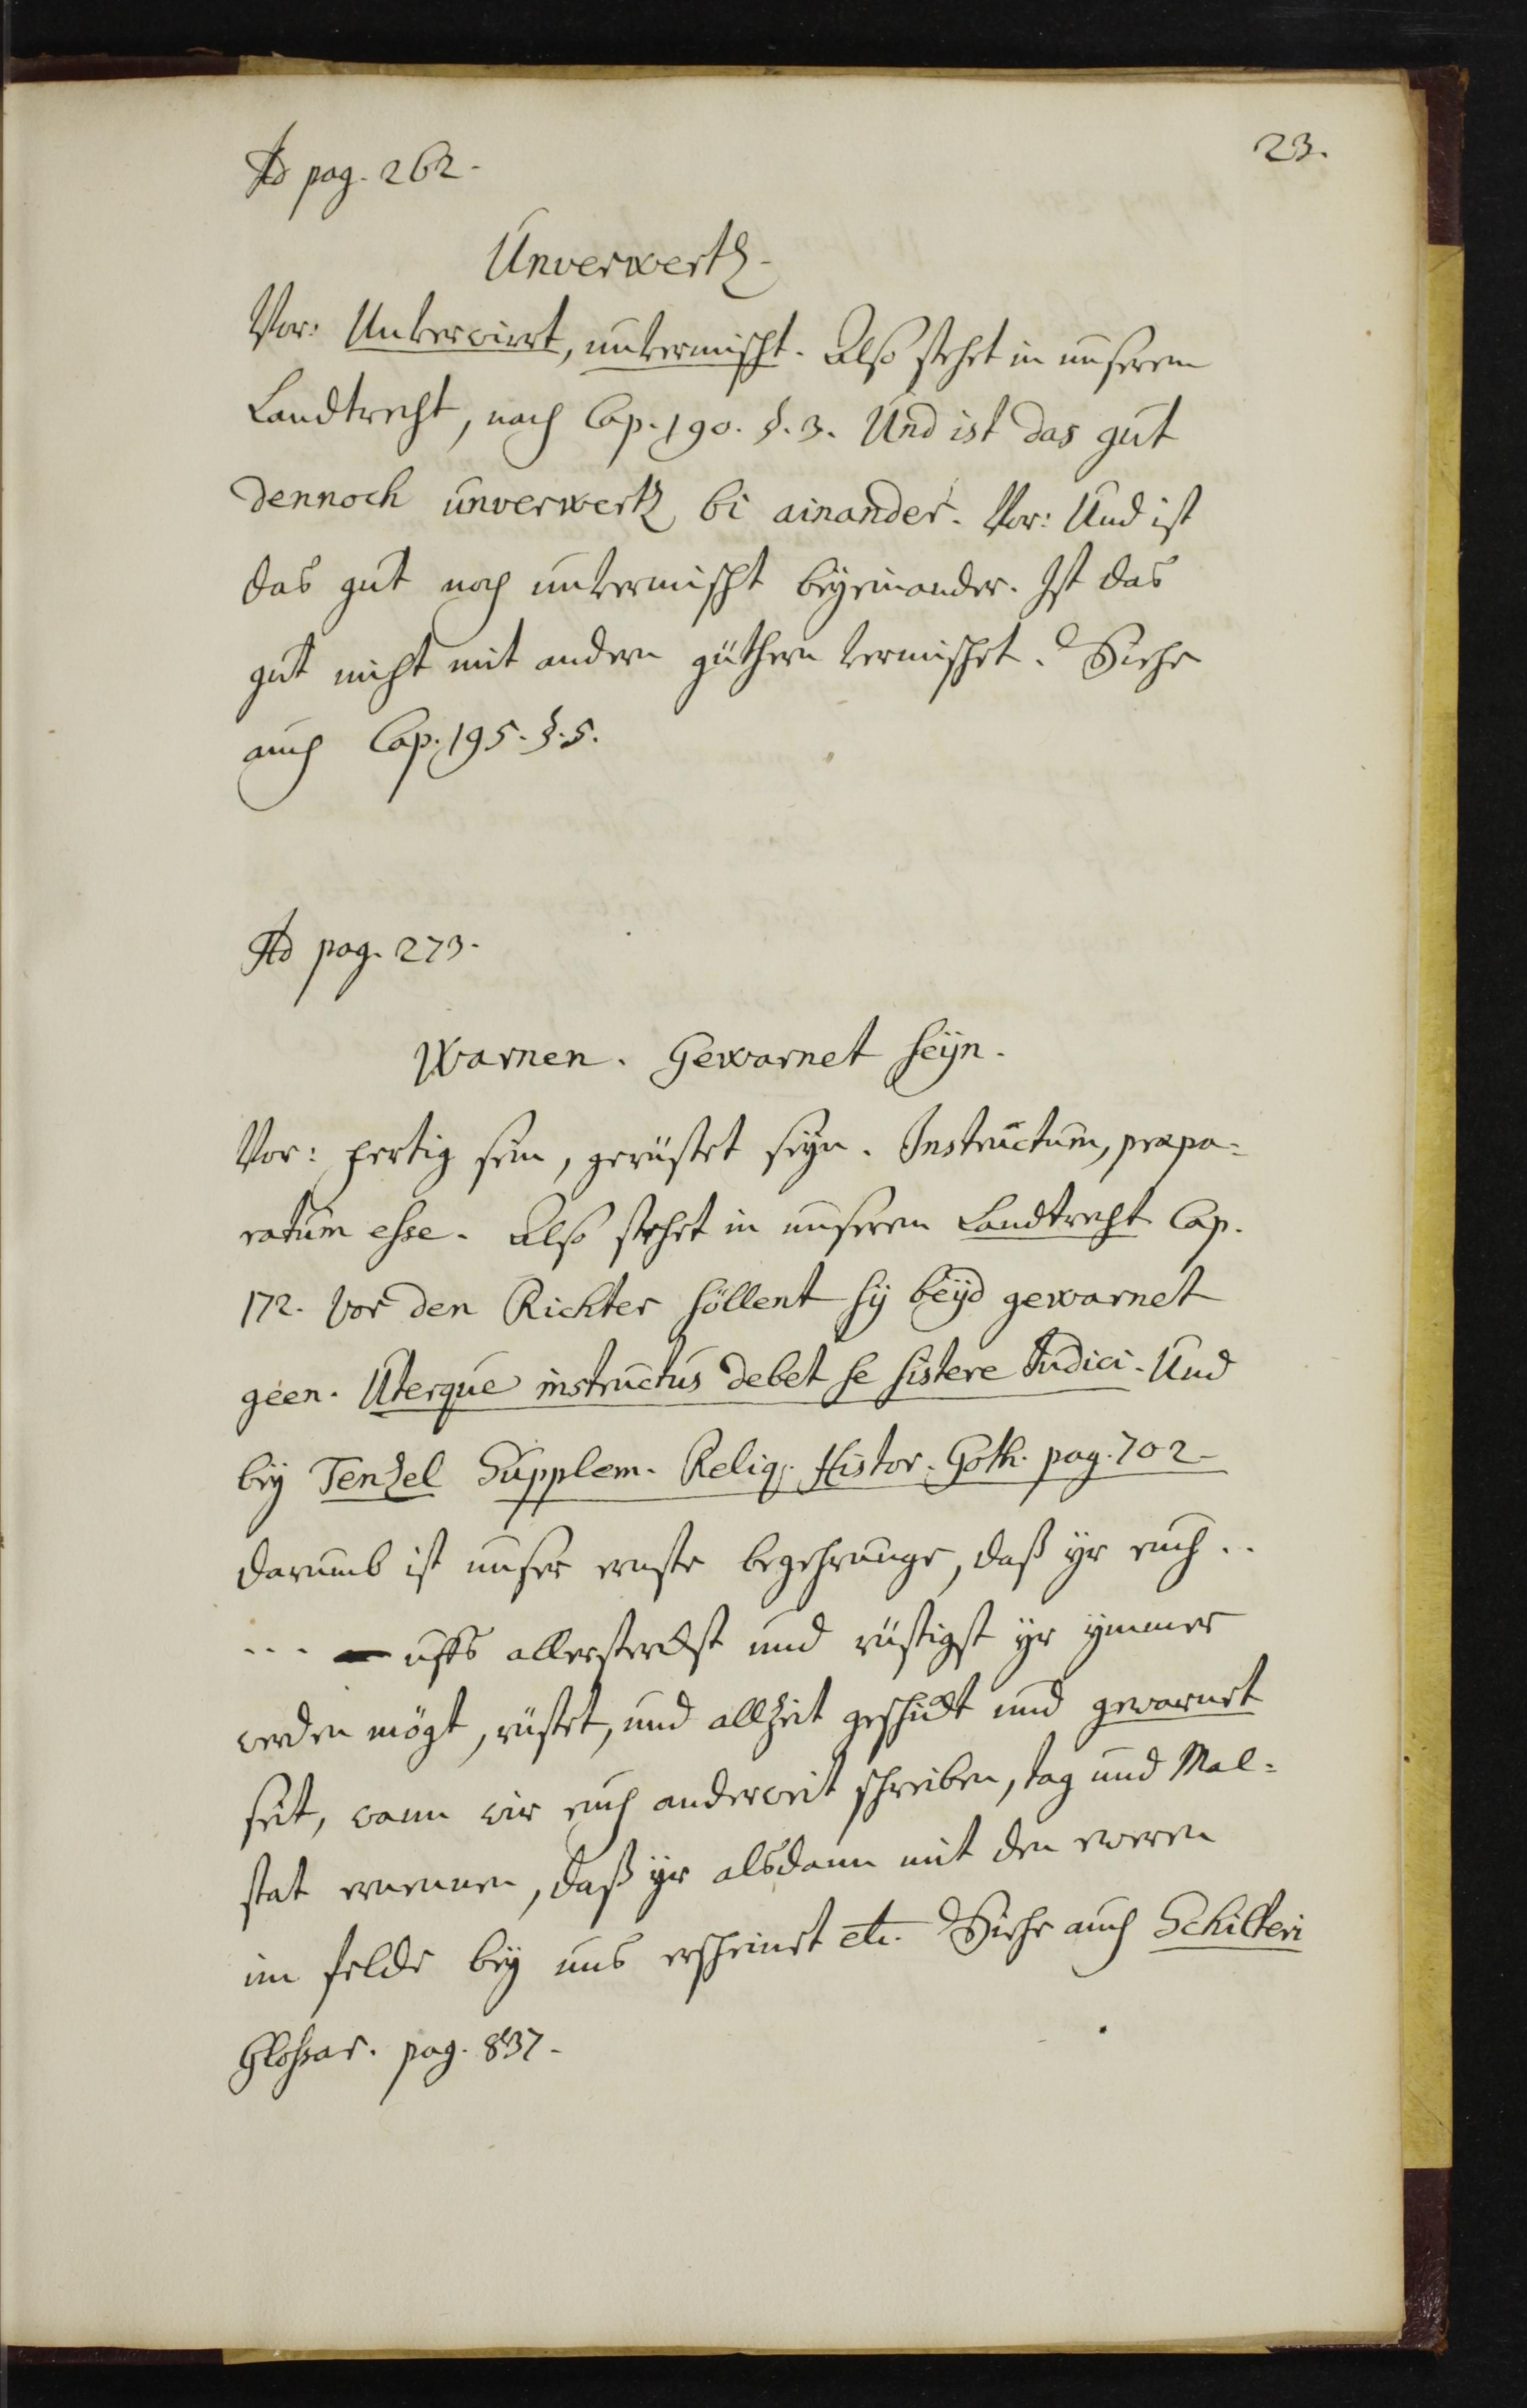 23.
Ad pag. 262.
Unverwertz.
Vor: Unverwirrt, unvermischt. Also stehet in unserem
Landtrecht, nach Cap. 190. §. 3. Und ist das gut
dennoch unverwertz bi ainander. Vor: Und ist
das gut noch unvermischt beyeinander. Ist das
gut nicht mit andern güthern vermischet. Siehe
auch Cap. 195. §. 5.
Ad pag. 273.
Warnen. Gewarnet seyn.
Vor: fertig sein, gerüstet seyn. Instructum, præpa-
ratum esse. Also stehet in unserem Landtrecht Cap.
172. Vor den Richter söllent sy beyd gewarnet
geen. Uterque instructus debet se sistere Judici. Und
bey Tenzel Supplem. Reliq. Histor. Goth. pag. 702.
darumb ist unser ernste begehrunge, daß yr euch ..
... uffs allersterckst und rüstigst yr ymmer
werden mögt, rüstet, und allzeit geschickt und gewarnet
seit, wann wir euch anderweit schreiben, tag und Mal-
stat ernennen, daß yr alsdann mit den eweren
im felde bey uns erscheinet etc. Siehe auch Schilteri
Glossar. pag. 837.